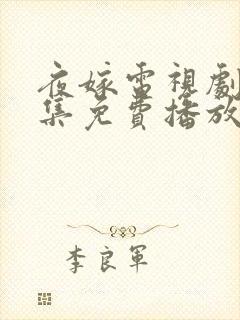 夜嫁電視劇
集免費播放
李良軍